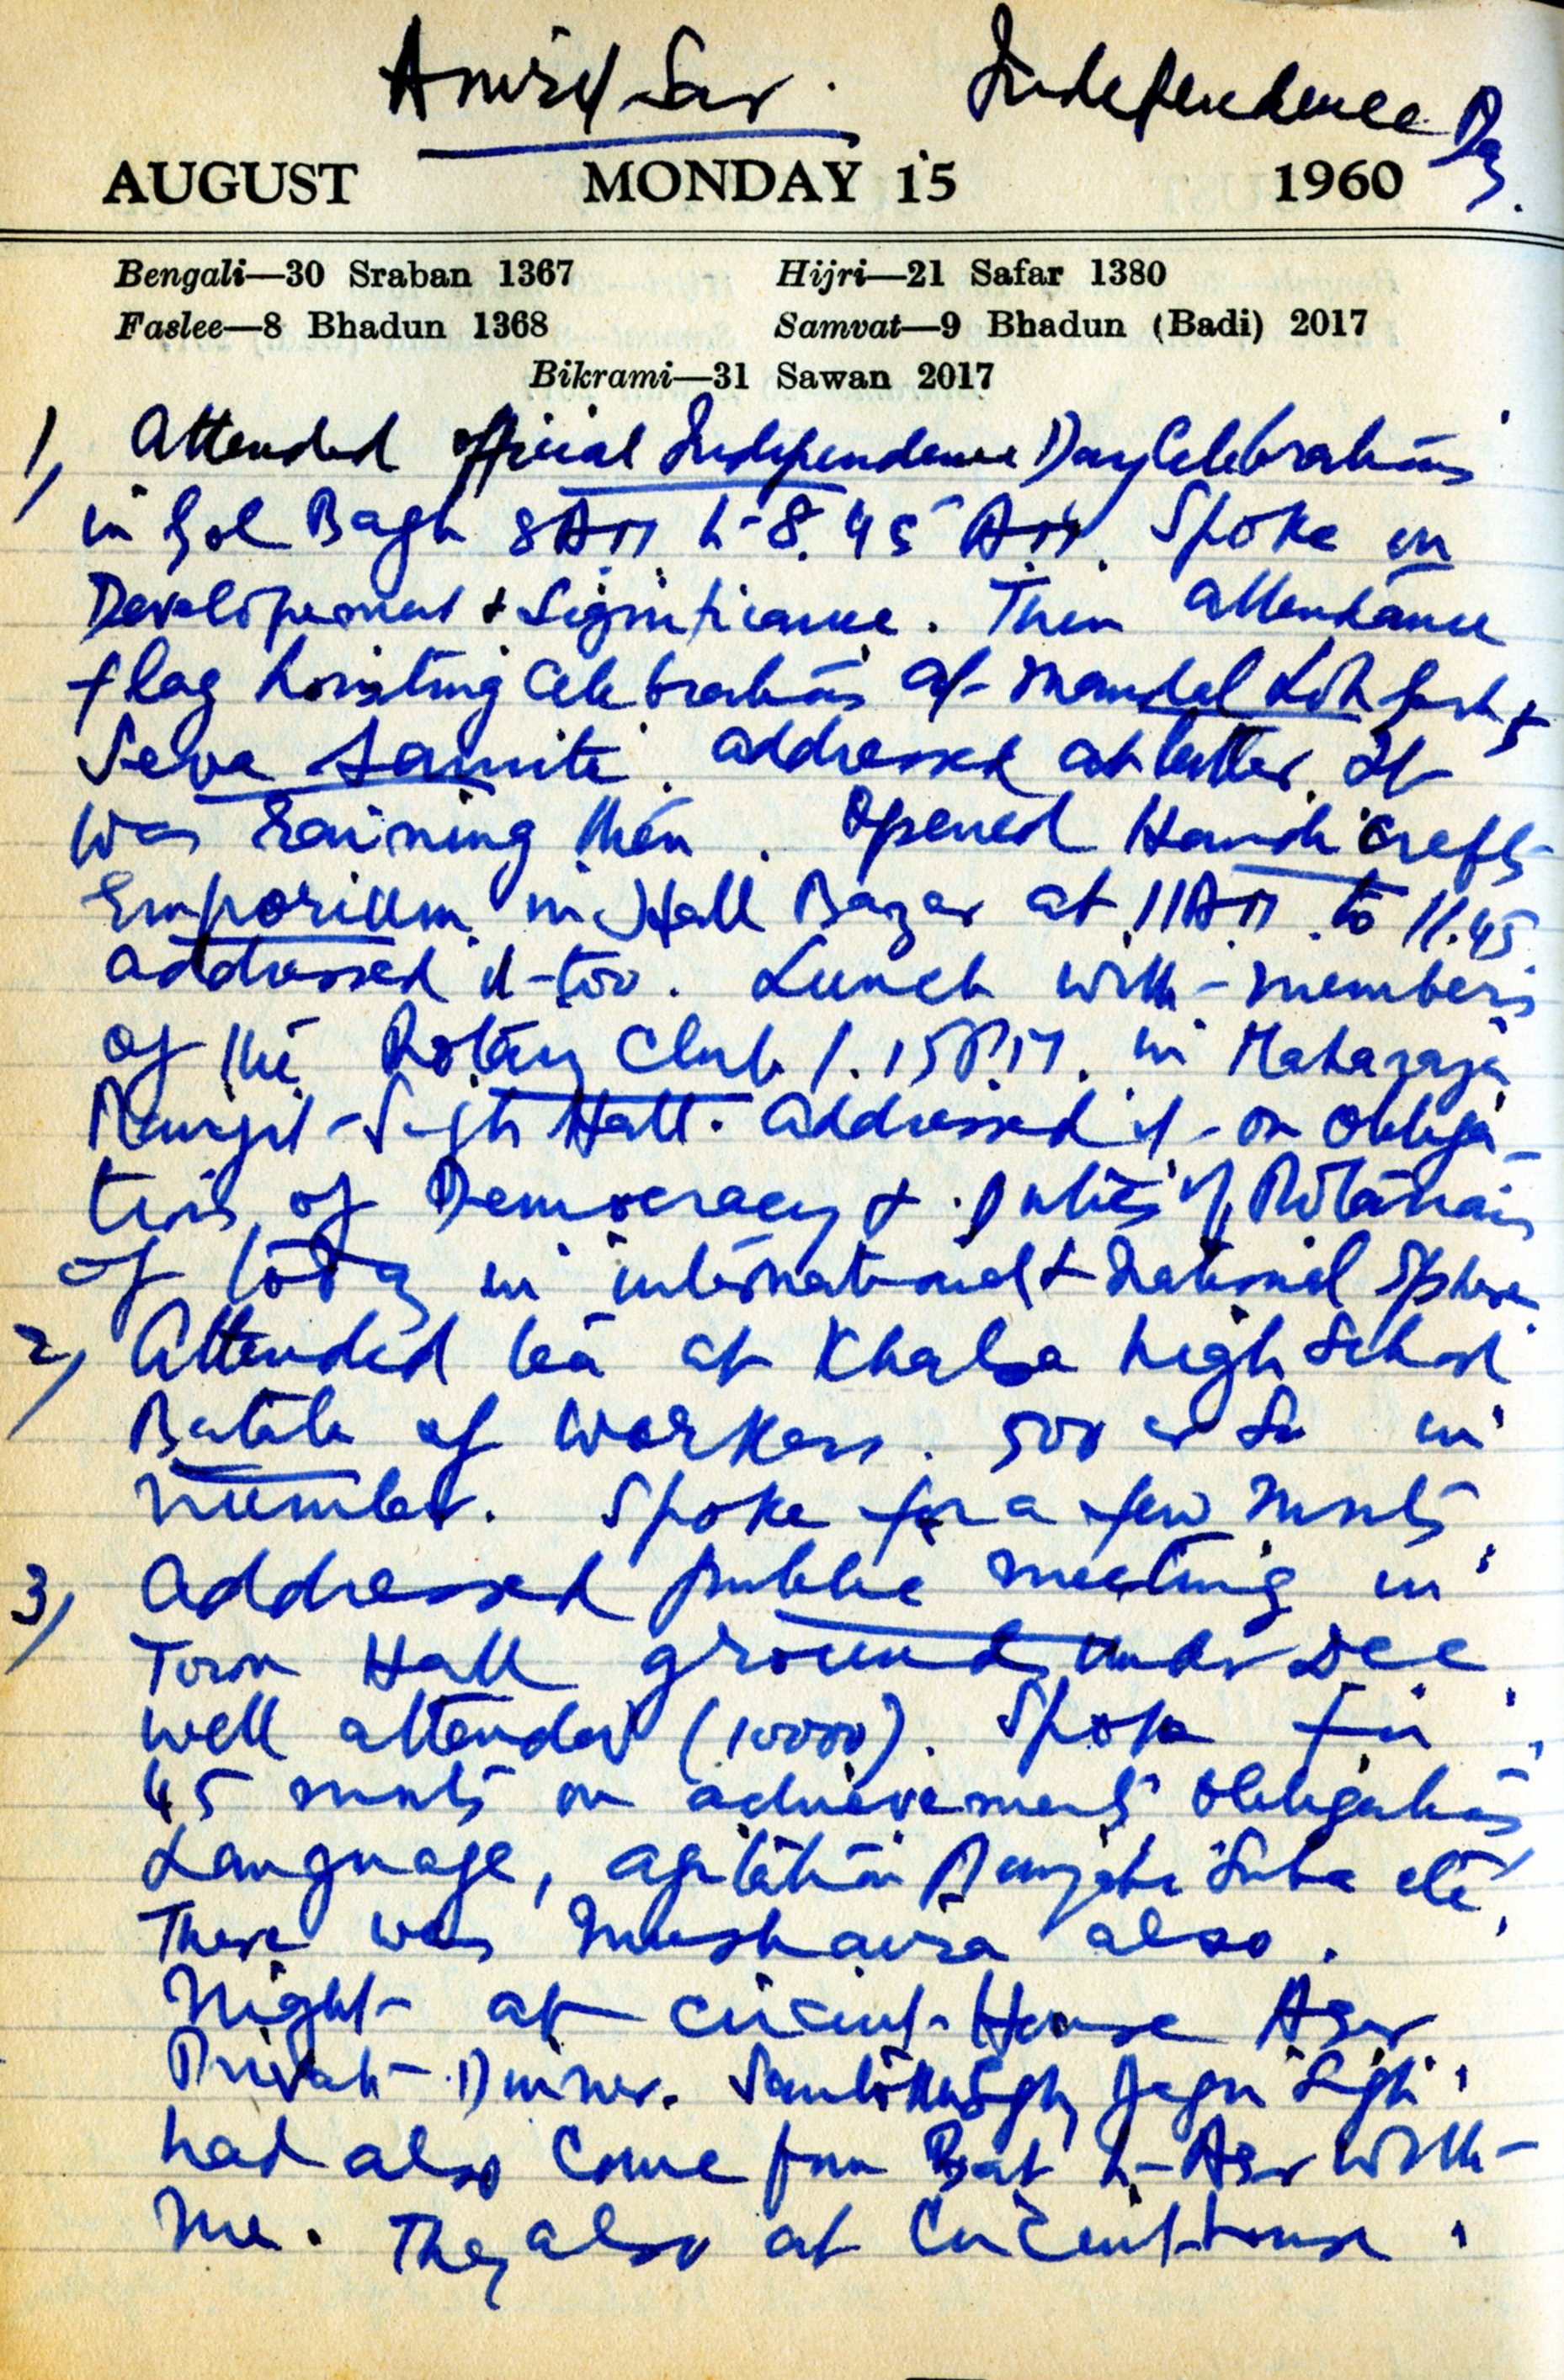 Amritsar. Independence Day.
AUGUST MONDAY 15 1960
Bengali—30 Sraban 1367 Hijri—21 Safar 1380
Faslee—8 Bhadun 1368 Samvat—9 Bhadun (Badi) 2017
Bikrami—31 Sawan 2017
1) Attended official Independence Day Celebrations
in Gol Bagh 8 AM to 8.45 AM. Spoke on
Developement & Significance. Then attendance
flag hoisting Celebrations at Mandal &
Seva Samite. addressed at latter. It
was raining then. Opened Handicrafts
Emporium in Hall Bazar at 11 AM to 11.45
addressed it too. Lunch with members
of the Rotary Club 1.15 P.M. in Maharaja
Ranjit Singh Hall. addressed it on obliga
tions of Democracy & duties of Rotarians
of today in international & national Sphere
2) Attended tea at Khalsa high School
Batala of workers. 500 or so in
number. Spoke for a few mnts
3) Addressed public meeting in
Town Hall grounds under DCC
well attended (10000). Spoke for
45 mnts on achievements obligations
Language, agitation Punjabi Suba etc.
There was Mushaira also.
Night at circuit House Asr
Private Dinner. Santokh Sgh, Singh
had also come from Bat to Asr with
me. They also at Circuit house.